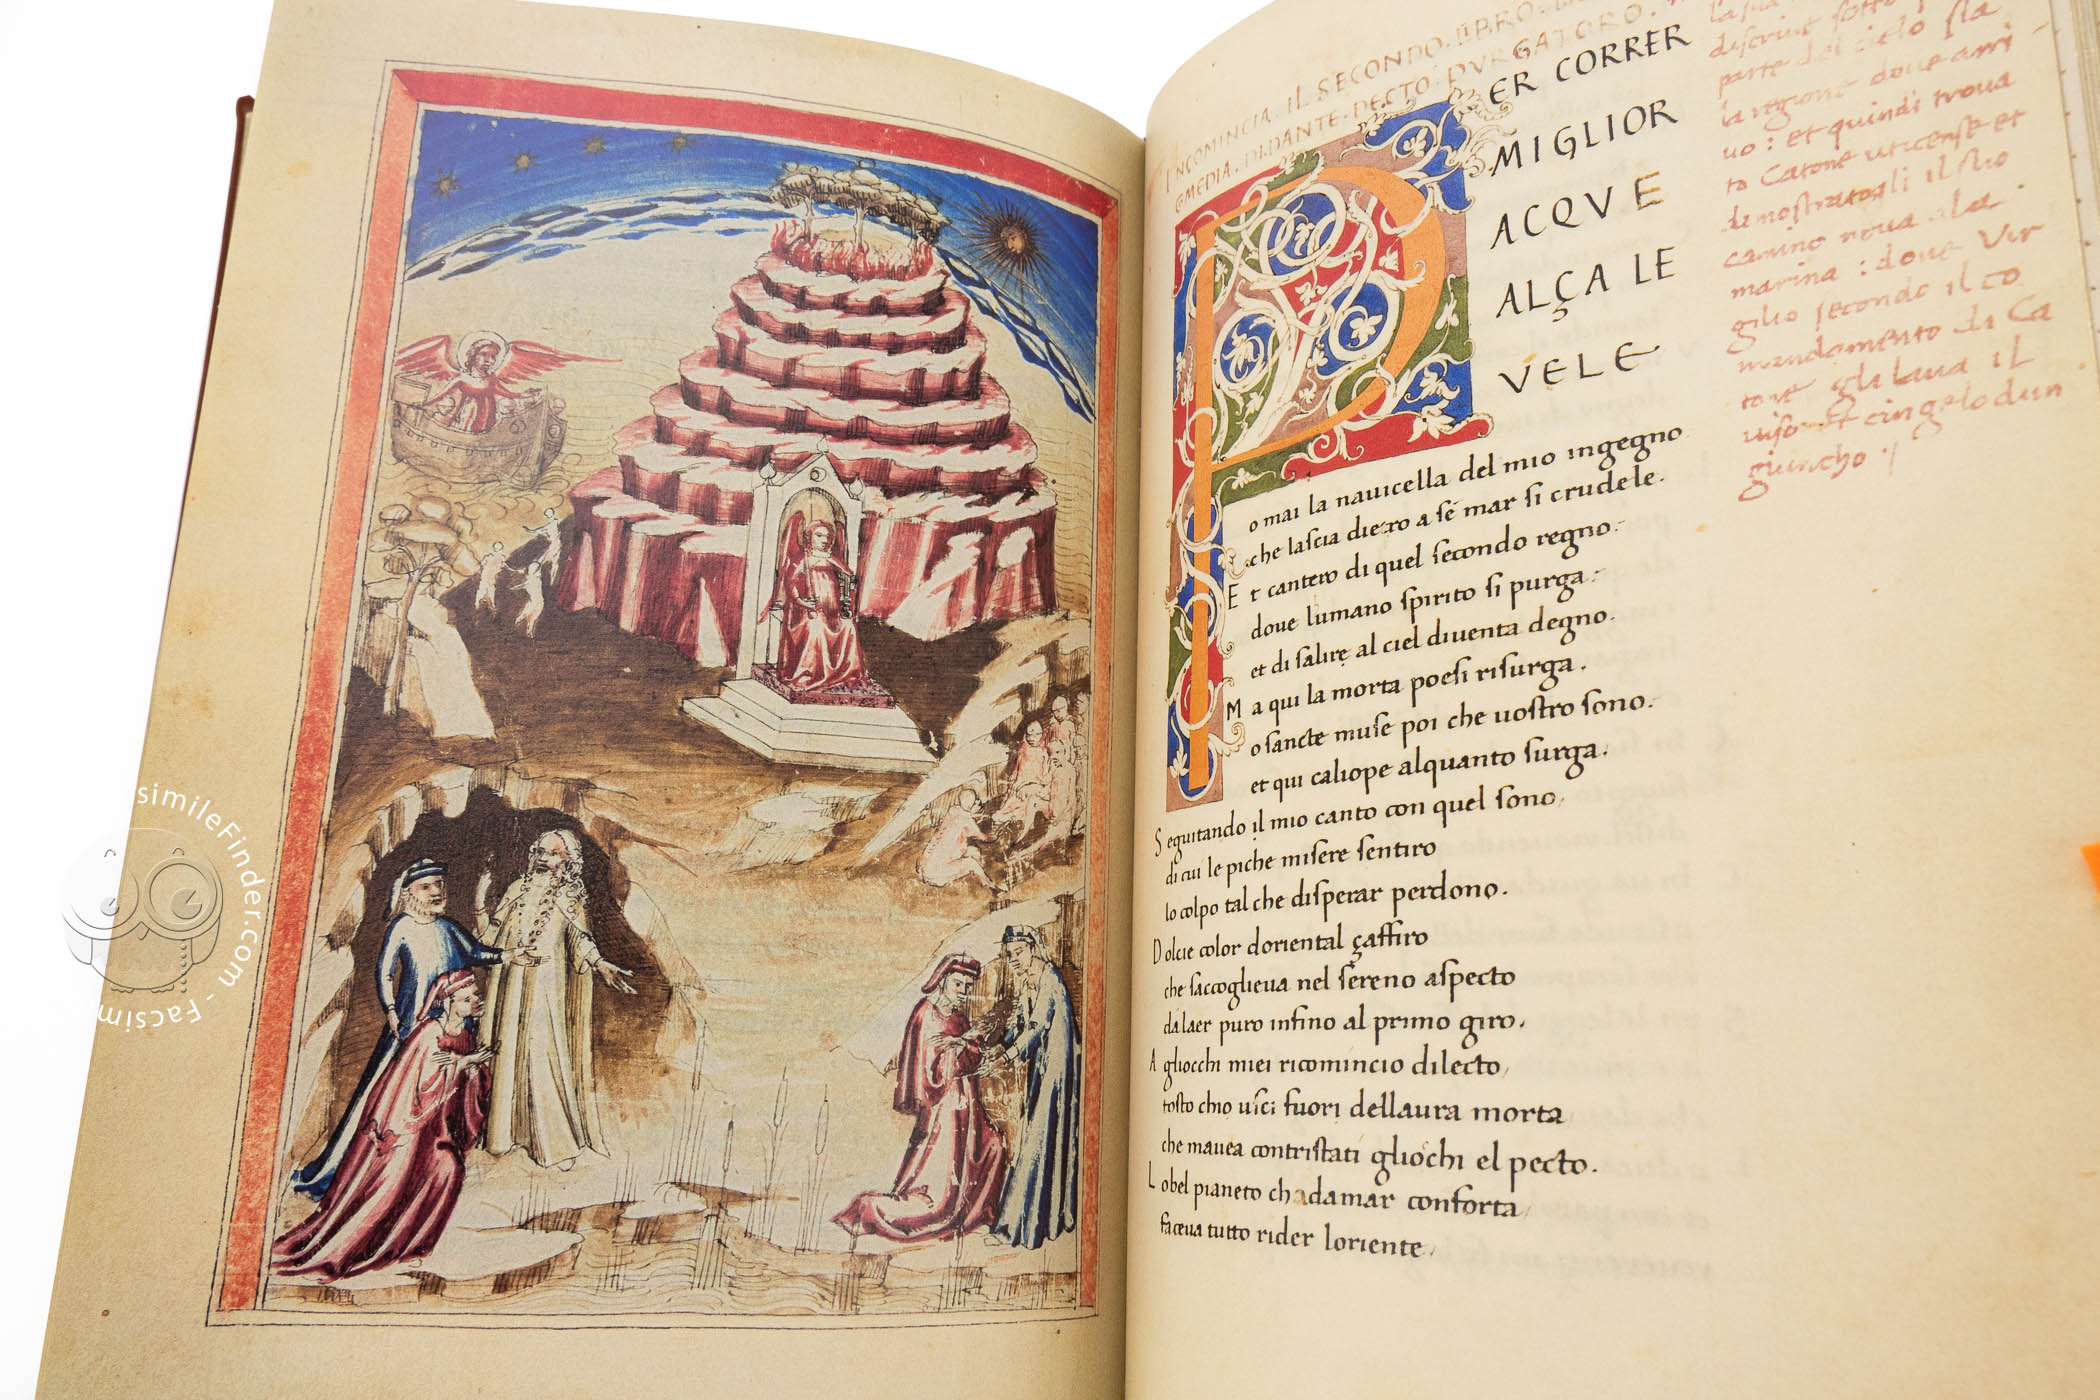 INCOMINCIA. IL SECONDO. LIBRO.
CMEDIA. DI. DANTE. DECTO. PVRGATORO.
PER CORRER
MIGLIOR
ACQVE
ALÇA LE
VELE
o mai la nauicella del mio ingegno
che lascia dietro a se mar si crudele.
E t cantero di quel secondo regno.
doue lumano spirito si purga.
et di salire al ciel diuenta degno.
M a qui la morta poesi risurga.
o sancte muse poi che uostro sono.
et qui caliope alquanto surga.
S eguitando il mio canto con quel sono,
di cui le piche misere sentiro
lo colpo tal che disperar perdono.
D olcie color doriental çaffiro
che saccoglieua nel sereno aspecto
da laer puro infino al primo giro,
A gliocchi miei ricomincio dilecto,
tosto chio usci fuori dellaura morta
che mauea contristati gliochi el pecto.
L o bel pianeto chadamar conforta,
faceua tutto rider loriente,
la sua
descriue sotto
parte del cielo sia
la regione doue arri
uo: et quindi troua
to Catone uticense et
demostratogli il suo
camino uoua ala
marina: doue Vir
gilio secondo il co
mandamento di Ca
tone gli laua il
uiso et cingelo dun
giuncho.
simileFinder.com - Facsim